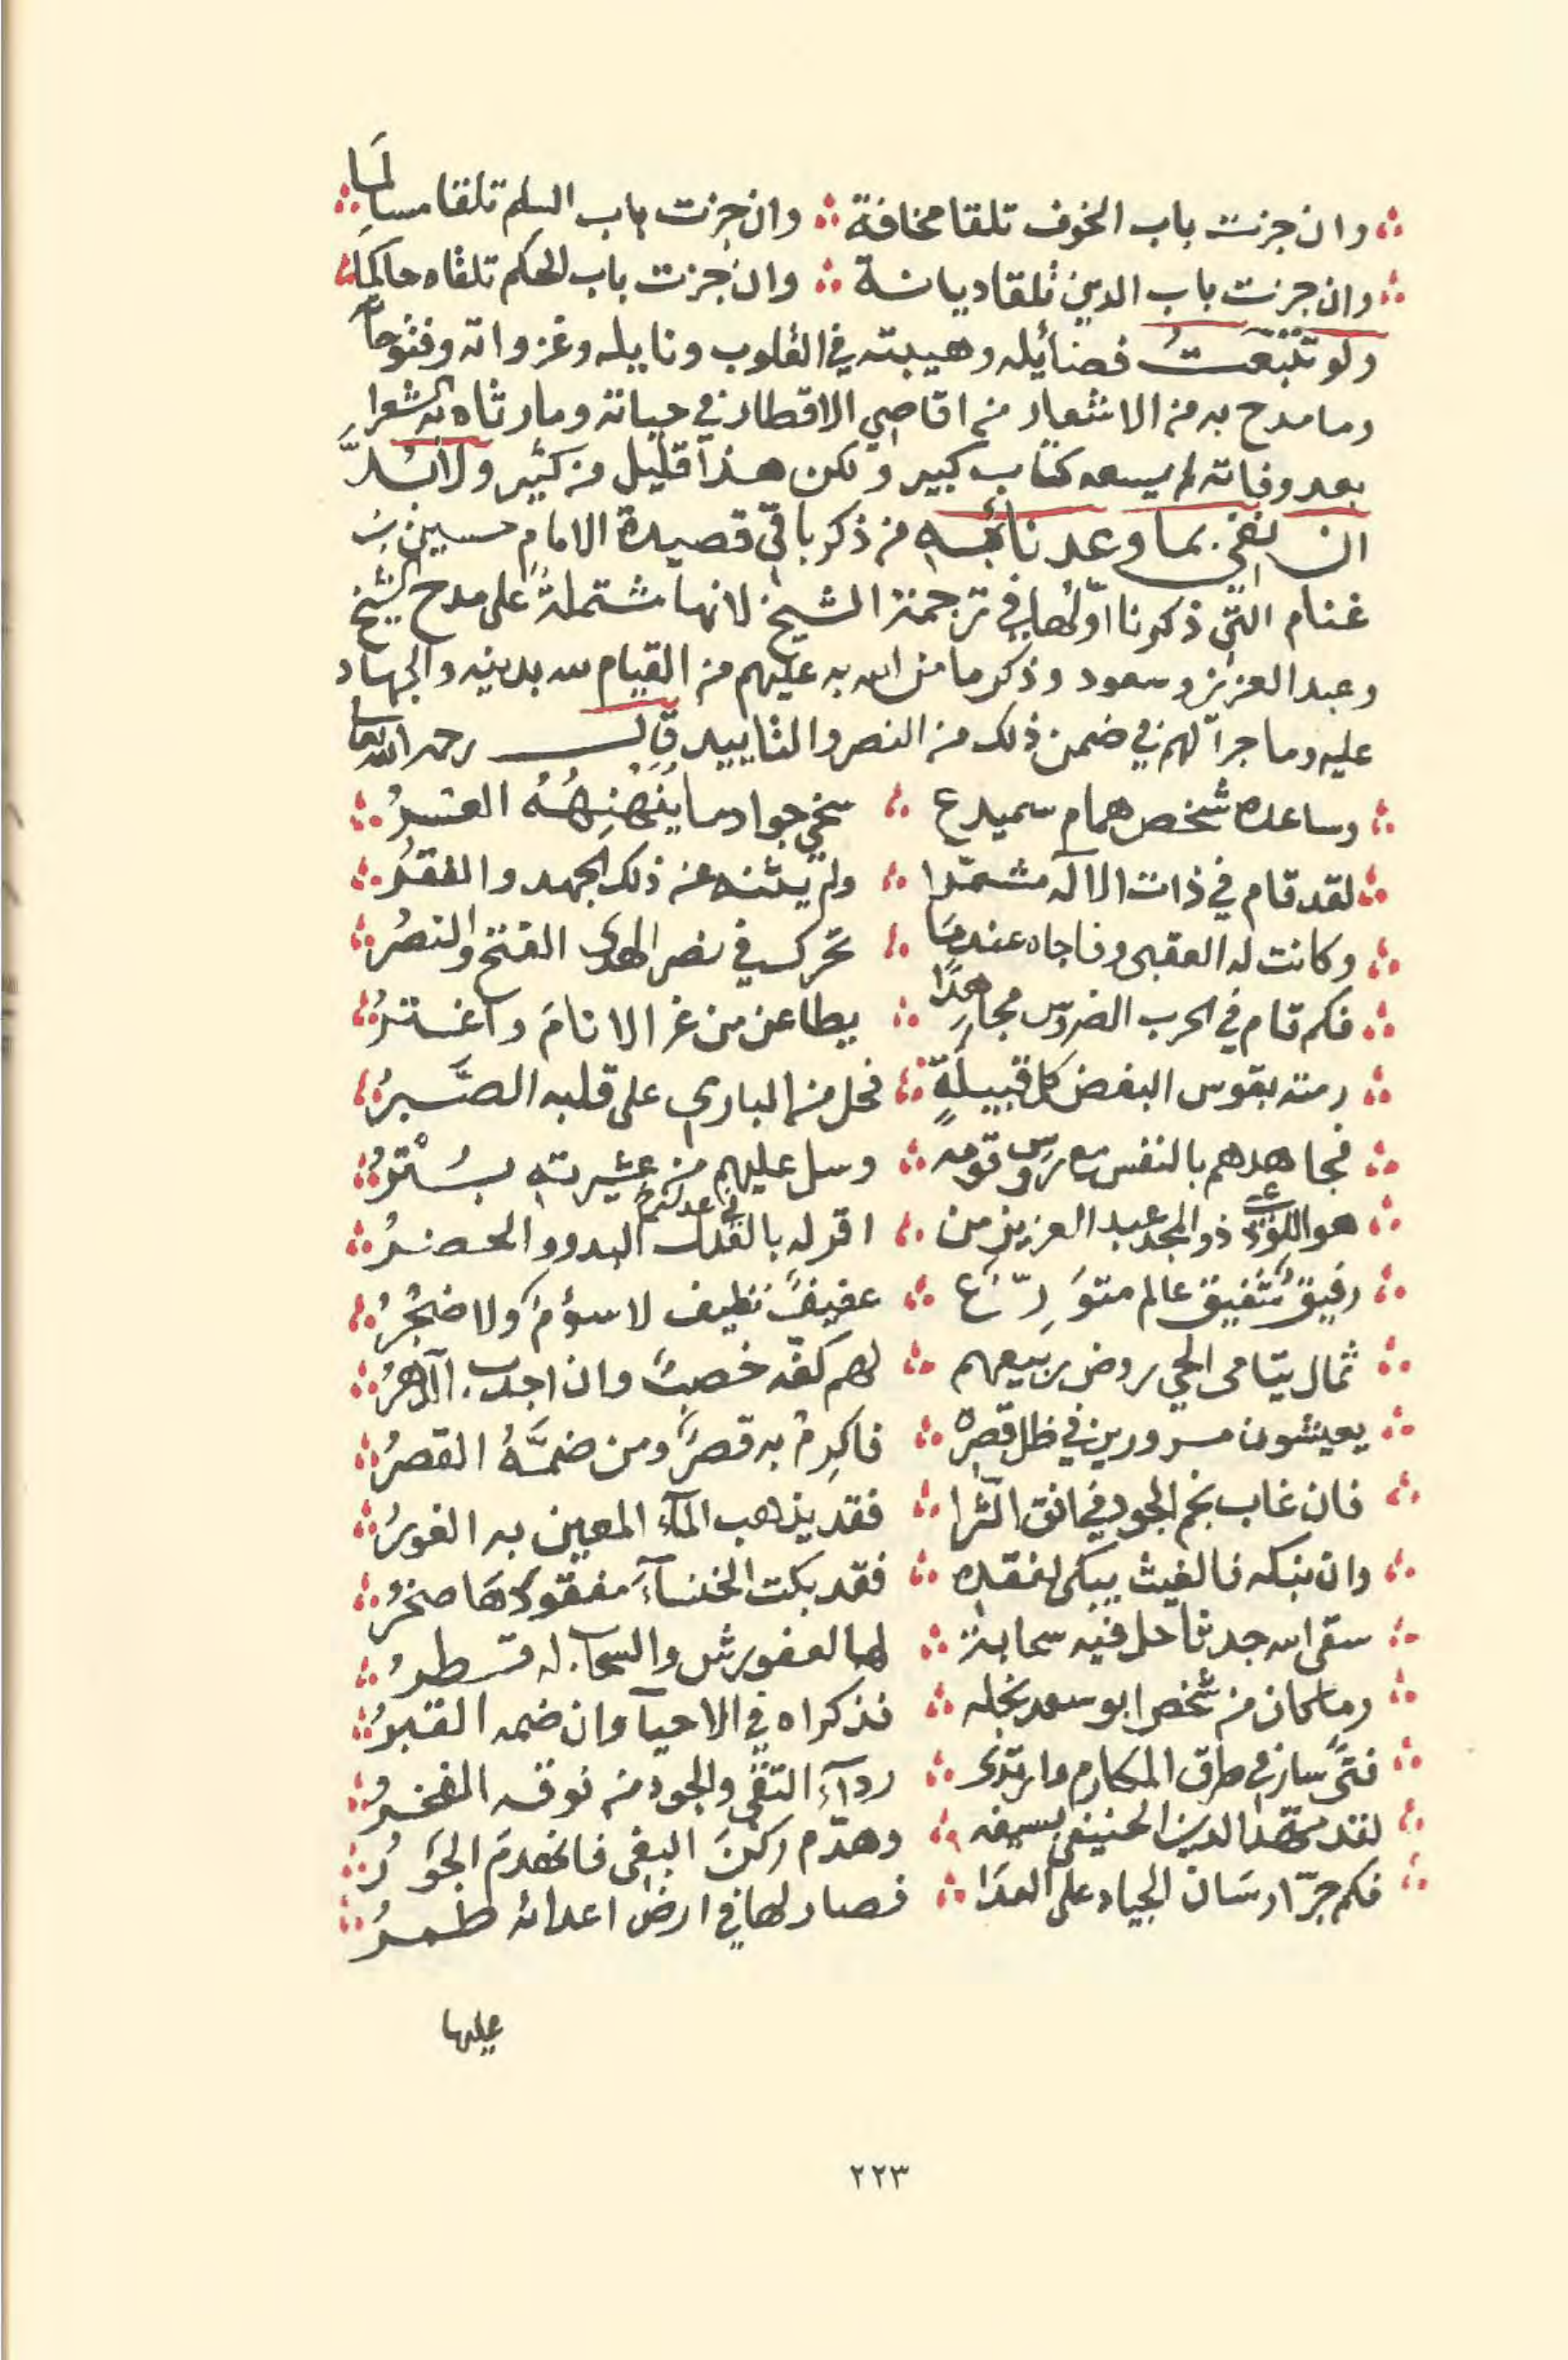 وان جزت باب الخوف تلقا مخافة ∴ وان جزت باب السلم تلقا مسالمَا
وان جزت باب الدين تلقا ديانة ∴ وان جزت باب الحكم تلقاه حاكمًا
ولو تتبّعتُ فضائيله وهيبته في القلوب ونايله وغزواته وفتوحاته
وما مدح به من الاشعار من اقاصي الاقطار في حياته ومارثاه به الشعرا
بعد وفاته لم يسعه كتاب كبير ولكن هذا قليل من كثير ولا بُدَّ
ان نفي بما وعدنا به من ذكر باقي قصيدة الامام حسين بن
غنام التي ذكرنا اوّلها في ترجمة الشيخ لانها مشتملةٌ على مدح الشيخ
وعبد العزيز وسعود وذكر ما من الله به عليهم من القيام لله بدينه والجهاد
عليه وما جرا لهم في ضمن ذلك من النصر والتاييد قال رحمه الله تعالى
وساعده شخص همام سميدع ∴ سخي جواد ما يُنَهْنِهُهُ العسرُ
لقد قام في ذات الآله مشمّرا ∴ ولم يثنه عن ذلك الجهد والفقرُ
وكانت له العقبى وفاجاه عندمَا ∴ تحرك في نصر الهدى الفتح والنصرُ
فكم قام في الحرب الضروس مجاهدًا ∴ يطاعن من غر الانامَ واغترُ
رمته بقوس البغض كل قبيلةٍ ∴ فحل من الباري على قلبه الصَّبرُ
فجاهدهم بالنفس مع رؤس قومه ∴ وسل عليهم من عشيرته بُتْرُ
هو اللوذعي ذو المجد عبد العزيز من ∴ اقر له بالفضل في عدله البدو والحضرُ
رفيقٌ شفيق عالم متوَرِّع ∴ عفيفٌ نظيف لا سؤمٌ ولا ضجُرُ
ثمال يتامى الحي روض ربيعهم ∴ لهم كفه خصبٌ وان اجدب الدهرُ
يعيشون مسرورين في ظل قصره ∴ فاكرِمْ به قصرًا ومن ضمَّهُ القصرُ
فان غاب نجم الجود في افق الثّرا ∴ فقد يذهب المآء المعين به الغورُ
وان نبكه فالغيث يبكى لفقده ∴ فقد بكت الخنسآءَ مفقودَهَا صخرُ
سقى الله جدثا حل فيه سحابة ∴ لها العفو رش والسحاب له قطرُ
وما كان من شخص ابو سعد نجله ∴ فذكراه في الاحيآ وان ضمه القبرُ
فتًى سار في طرق المكارم وارتدى ∴ ردآء التقى والجود من نوقه الفخرُ
لقد مهّد الدين الحنيفي بسيفه ∴ وهدّم ركنَ البغى فانهدمَ الجَورُ
فكم جرّ ارسَان الجياد على العدَا ∴ فصار لها في ارض اعدائه طمرُ
عليها
٢٢٣